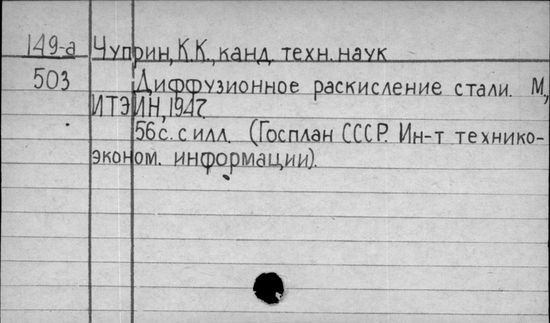 149-а Чуприн, К.К., канд. техн. наук
503 Диффузионное раскисление стали. М,
ИТЭИН, 1947.
56 с. с илл. (Госплан СССР. Ин-т технико-
эконом. информации).